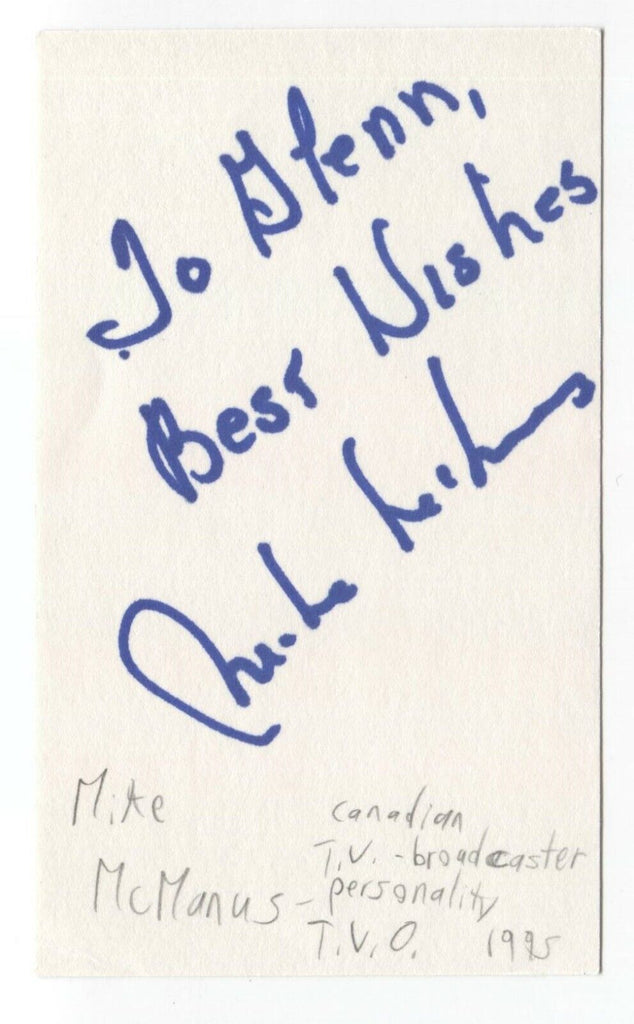 To Glenn,
Best Wishes
Mike McManus
Mike
McManus -
canadian
T.V. - broadcaster
personality
T.V.O. 1995